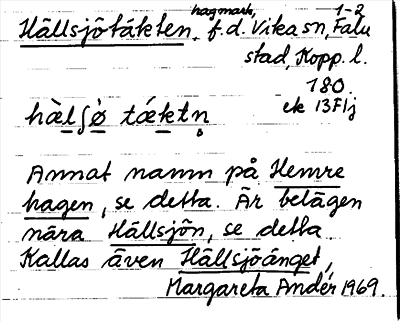 hagmark, 1-2
Hällsjötäkten, f.d. Vika sn, Falu
stad, Kopp. l.
180.
ek 13F1j
hàlʃø tǽktn̥
Annat namn på Hemre
hagen, se detta. Är belägen
nära Hällsjön, se detta.
Kallas även Hällsjöänget,
Margareta Andér 1969.